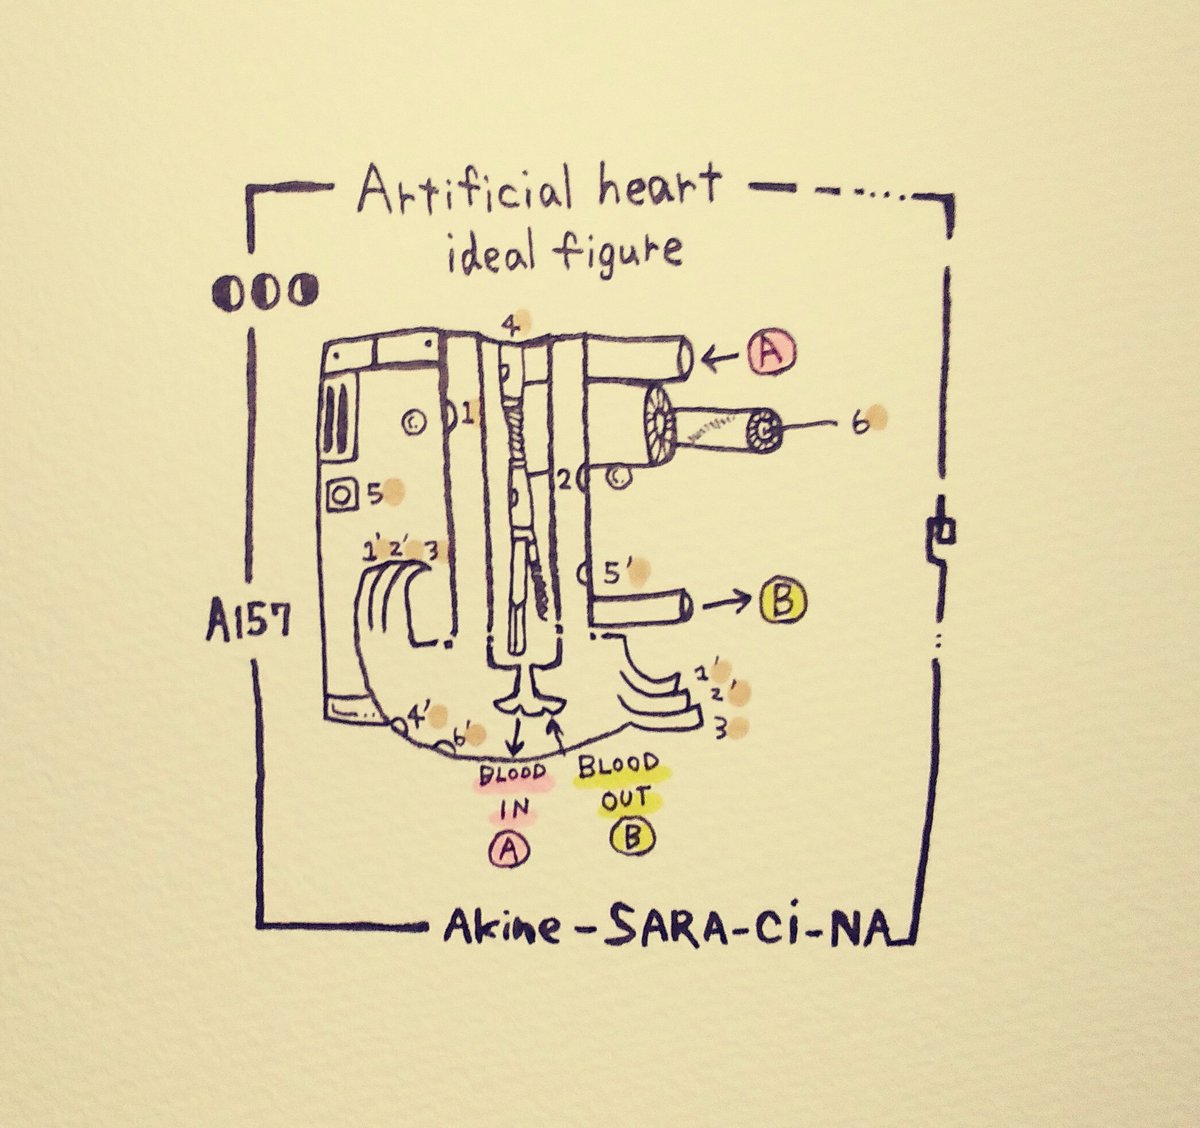 Artificial heart
ideal figure
4
A
1
6
2
5
1' 2' 3
5'
B
A157
1'
2'
3
4'
6'
BLOOD
IN
A
BLOOD
OUT
B
Akine-SARA-Ci-NA